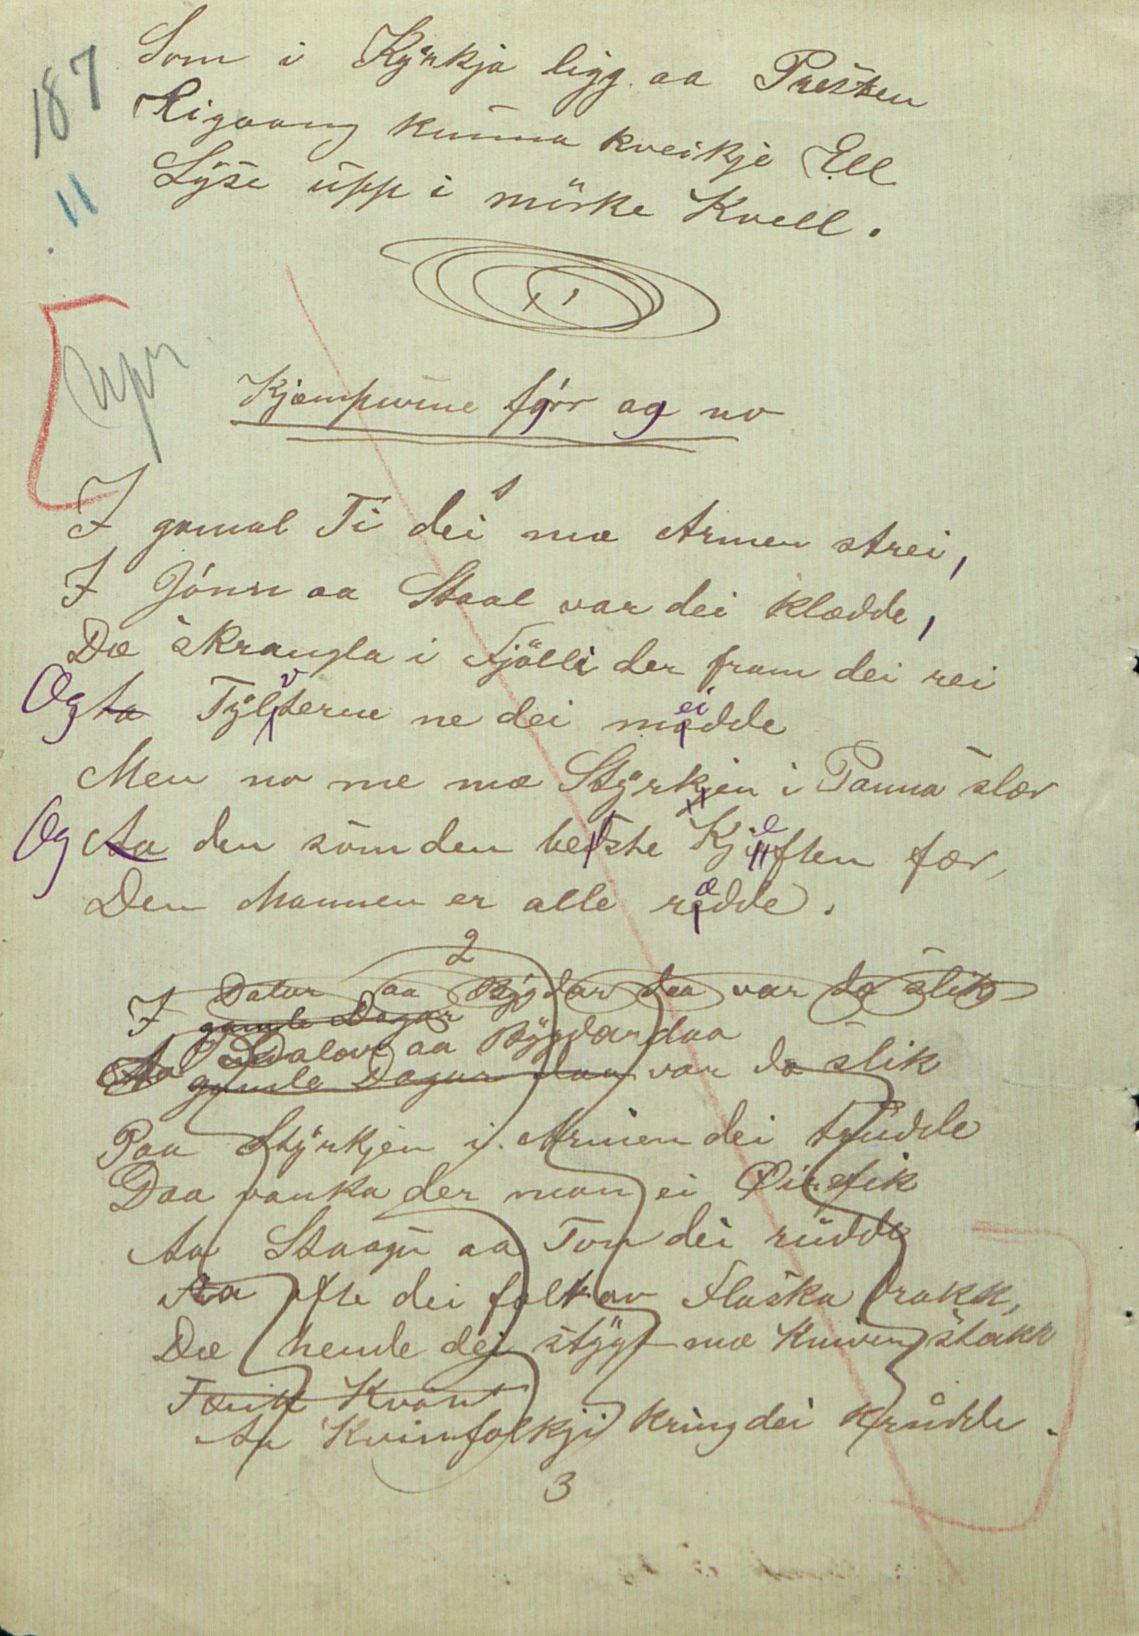 187
Som i Kyrkja ligg aa Presten
Rigaang kunna kveikje Ell
11
Lyse upp i mörke Kvell.
Kjæmpurne fyrr og no
I gamal Ti dei mæ Armen strei,
I Jónn aa Staal var dei klædde,
Dæ skrangla i Fjölli der fram dei rei
Og Aa Tylvterne ne dei meidde
Men no me mæ Styrkjen i Panna slær
Og Aa den som den beste Kjeften fær,
Den Mannen er alle rædde.
2
I Dalar aa Bygdar daa var dæ slik
gamle Dagar
Aa Dalar aa Bygdar daa
gamle Dagar daa var dæ slik
Paa Styrkjen i Armen dei trudde
Daa vanka der mang ei Öirefik
Aa Staagu aa Ton dei rudde
Aa ofte dei folk av Flaska drakk,
Dæ hende dei stygt mæ Kniven stakk
Aa Kvinnfolkji kring dei krudde.
3